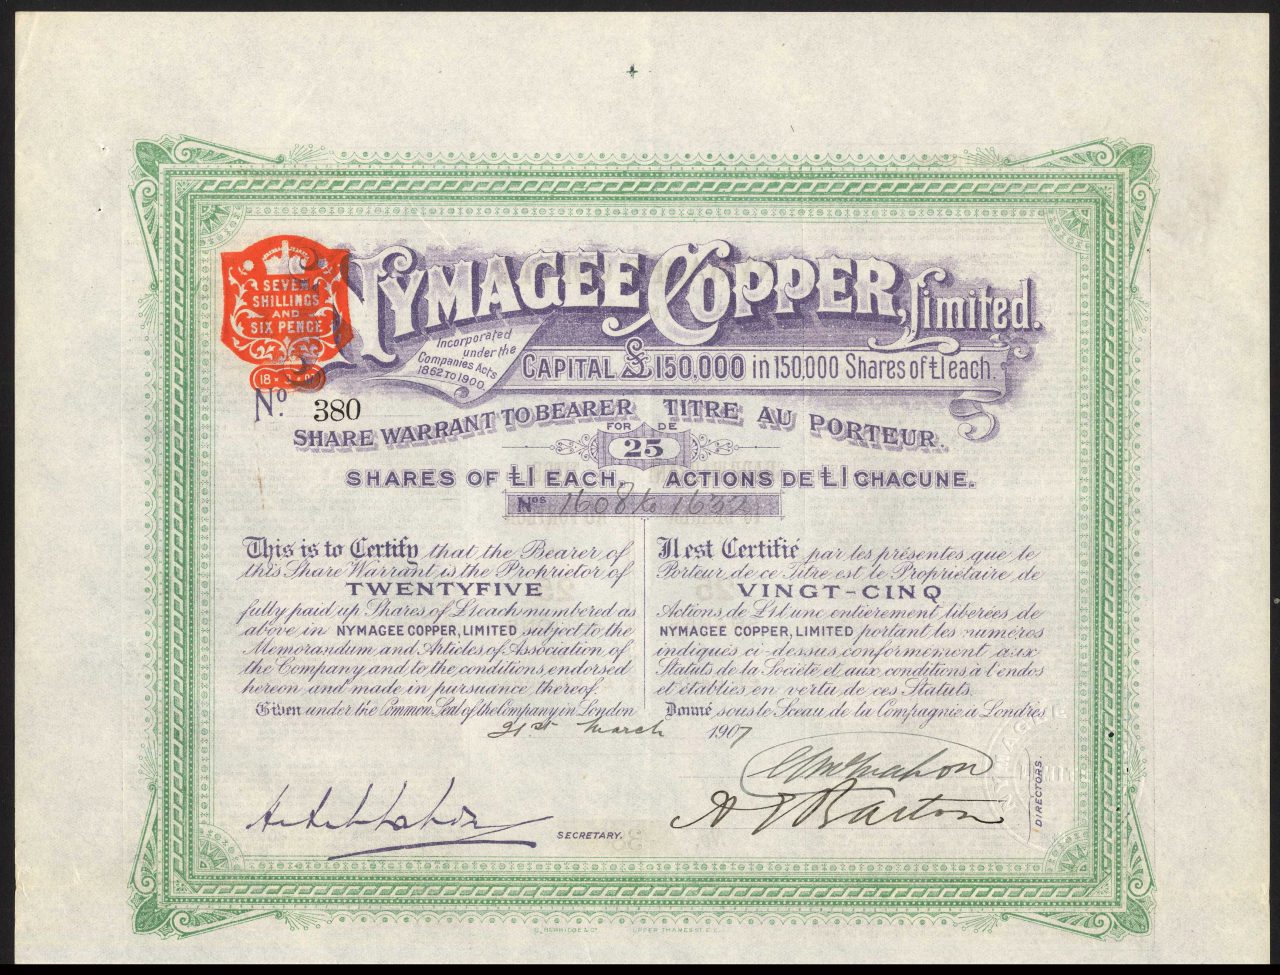 SEVEN
SHILLINGS
AND
SIX PENCE
NYMAGEE COPPER, Limited.
Incorporated
under the
Companies Acts
1862 TO 1900.
CAPITAL £150,000 in 150,000 Shares of £1 each.
No. 380
SHARE WARRANT TO BEARER TITRE AU PORTEUR.
FOR DE
25
SHARES OF £1 EACH. ACTIONS DE £1 CHACUNE.
Nos 1608 to 1632
This is to Certify that the Bearer of
this Share Warrant is the Proprietor of
TWENTYFIVE
fully paid up Shares of £1 each numbered as
above in NYMAGEE COPPER, LIMITED subject to the
Memorandum and Articles of Association of
the Company and to the conditions endorsed
hereon and made in pursuance thereof.
Given under the Common Seal of the Company in London
Il est Certifié par les présentes que le
Porteur de ce Titre est le Propriétaire de
VINGT-CINQ
Actions de £1 l'une entièrement libérées de
NYMAGEE COPPER, LIMITED portant les numéros
indiqués ci-dessus conformément aux
Statuts de la Société et aux conditions à l'endos
et établies en vertu de ces Statuts.
Donné sous le Sceau de la Compagnie à Londres
21st March 1907
A E Barton
DIRECTORS.
SECRETARY.
UPPER THAMES ST. E.C.